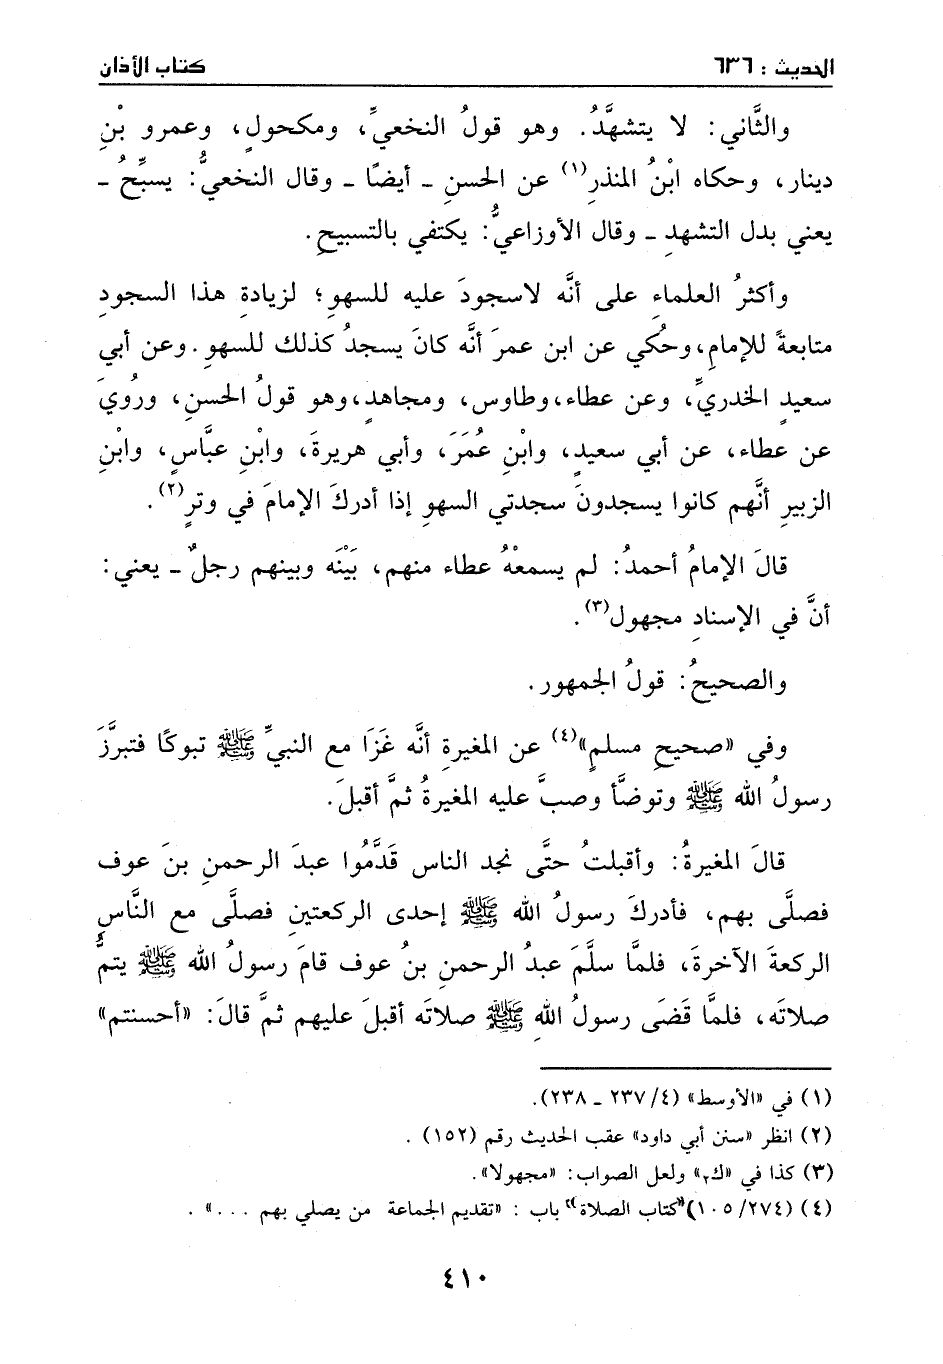 الحديث : ٦٣٦ كتاب الأذان
والثَّاني: لا يتشهَّدُ. وهو قولُ النخعيِّ، ومكحولٍ، وعمرو بْنِ
دينار، وحكاه ابْنُ المنذرِ(١) عن الحسنِ ـ أيضًا ـ وقال النخعيُّ: يسبِّحُ ـ
يعني بدل التشهدِ ـ وقال الأوزاعيُّ: يكتفي بالتسبيحِ.
وأكثرُ العلماءِ على أنَّه لاسجودَ عليه للسهوِ؛ لزيادةِ هذا السجودِ
متابعةً للإمامِ، وحُكي عن ابن عمرَ أنَّه كانَ يسجدُ كذلك للسهوِ. وعن أبي
سعيدٍ الخدريِّ، وعن عطاء، وطاوس، ومجاهدٍ، وهو قولُ الحسنِ، ورُويَ
عن عطاء، عن أبي سعيدٍ، وابْنِ عُمَرَ، وأبي هريرةَ، وابْنِ عبَّاسٍ، وابْنِ
الزبيرِ أنَّهم كانوا يسجدونَ سجدتي السهوِ إذا أدركَ الإمامَ في وترٍ(٢).
قالَ الإمامُ أحمدُ: لم يسمعْهُ عطاء منهم، بَيْنَه وبينهم رجلٌ ـ يعني:
أنَّ في الإسنادِ مجهولِ(٣).
والصحيحُ: قولُ الجمهورِ.
وفي «صحيحِ مسلمٍ»(٤) عن المغيرةِ أنَّه غَزَا مع النبيِّ ﷺ تبوكًا فتبرَّزَ
رسولُ الله ﷺ وتوضَّأ وصبَّ عليه المغيرةُ ثمَّ أقبلَ.
قالَ المغيرةُ: وأقبلتُ حتَّى نجد الناس قَدَّمُوا عبدَ الرحمنِ بنَ عوف
فصلَّى بهم، فأدركَ رسولُ الله ﷺ إحدى الركعتينِ فصلَّى مع النَّاسِ
الركعةَ الآخرةَ، فلمَّا سلَّمَ عبدُ الرحمنِ بنُ عوف قامَ رسولُ الله ﷺ يتمُّ
صلاتَه، فلمَّا قَضَى رسولُ اللهِ ﷺ صلاتَه أقبلَ عليهم ثمَّ قالَ: «أحسنتم»
(١) في «الأوسط» (٤/ ٢٣٧ ـ ٢٣٨).
(٢) انظر «سنن أبي داود» عقب الحديث رقم (١٥٢) .
(٣) كذا في «ك٢» ولعل الصواب: «مجهولا».
(٤) (٢٧٤/ ١٠٥) «كتاب الصلاة» باب : «تقديم الجماعة من يصلي بهم ...» .
٤١٠